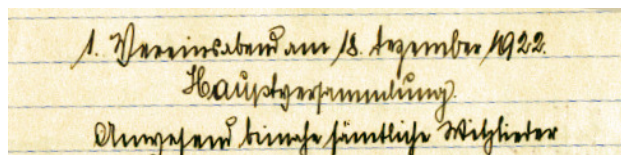 1. Vereinsabend am 18. Dezember 1922.
Hauptversammlung.
Anwesend beinahe sämtliche Mitglieder